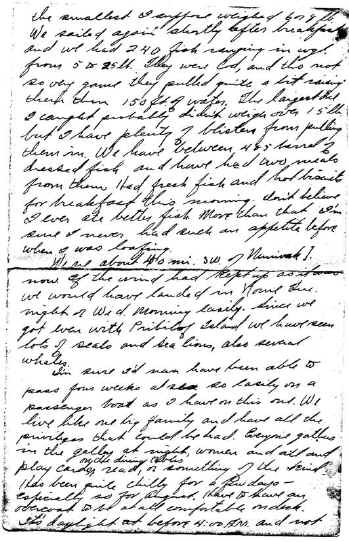 the smallest I suppose weighed 6 or 8 lb.
We sailed again shortly after breakfast
and we had 240 fish ranging in wgt.
from 5 to 25 lb. They were Cod, and tho not
so very gamey they pulled quite a bit raising
them from 150 ft of water. The largest one
I caught probably didn't weigh over 15 lb
but I have plenty of blisters from pulling
them in. We have between 4 & 5 barrels of
dressed fish and have had two meals
from them. Had fresh fish and hot biscuits
for breakfast this morning. don't believe
I ever ate better fish. More than that I'm
sure I never had such an appetite before
when I was loafing.
We are about 40 mi. SW of Nunivak I.
now. If the wind had kept up as it was
we would have landed in Nome Tue.
night or Wed. Morning easily. Since we
got even with Pribilof Island we have seen
lots of seals and sea lions, also several
whales.
I'm sure I'd never have been able to
pass four weeks at sea so easily on a
passenger boat as I have on this one. We
live like one big family and have all the
privileges that could be had. Everyone gathers
in the galley at night, women and all and
on the dining tables
play cards, read, or something of the kind.
Has been quite chilly for a few days –
especially so for August. Have to have an
overcoat to be at all comfortable on deck.
It's daylight at before 4:00 A.M. and not